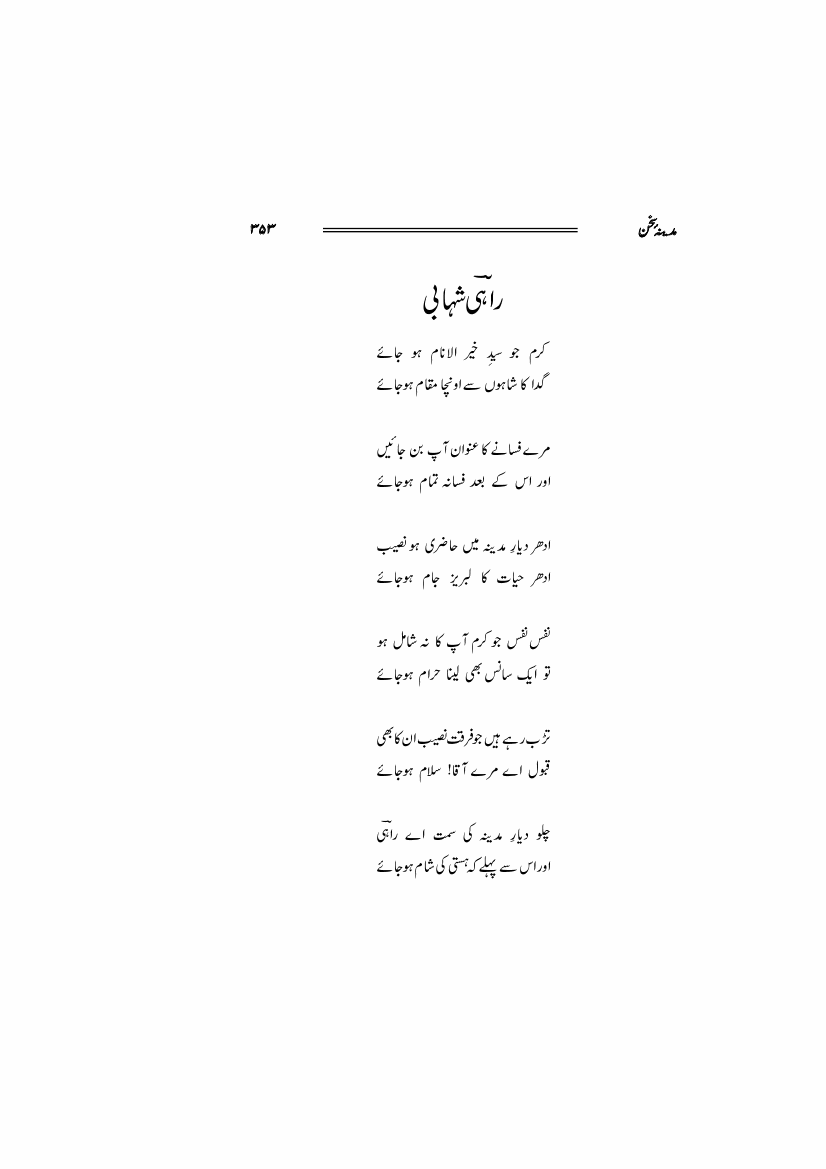 مدینۂ سخن ۳۵۳
راہیؔ شہابی
کرم جو سیدِ خیر الانام ہو جائے
گدا کا شاہوں سے اونچا مقام ہوجائے
مرے فسانے کا عنوان آپ بن جائیں
اور اس کے بعد فسانہ تمام ہوجائے
ادھر دیارِ مدینہ میں حاضری ہو نصیب
ادھر حیات کا لبریز جام ہوجائے
نفس نفس جو کرم آپ کا نہ شامل ہو
تو ایک سانس بھی لینا حرام ہوجائے
تڑپ رہے ہیں جو فرقت نصیب ان کا بھی
قبول اے مرے آقا! سلام ہوجائے
چلو دیارِ مدینہ کی سمت اے راہیؔ
اور اس سے پہلے کہ ہستی کی شام ہوجائے